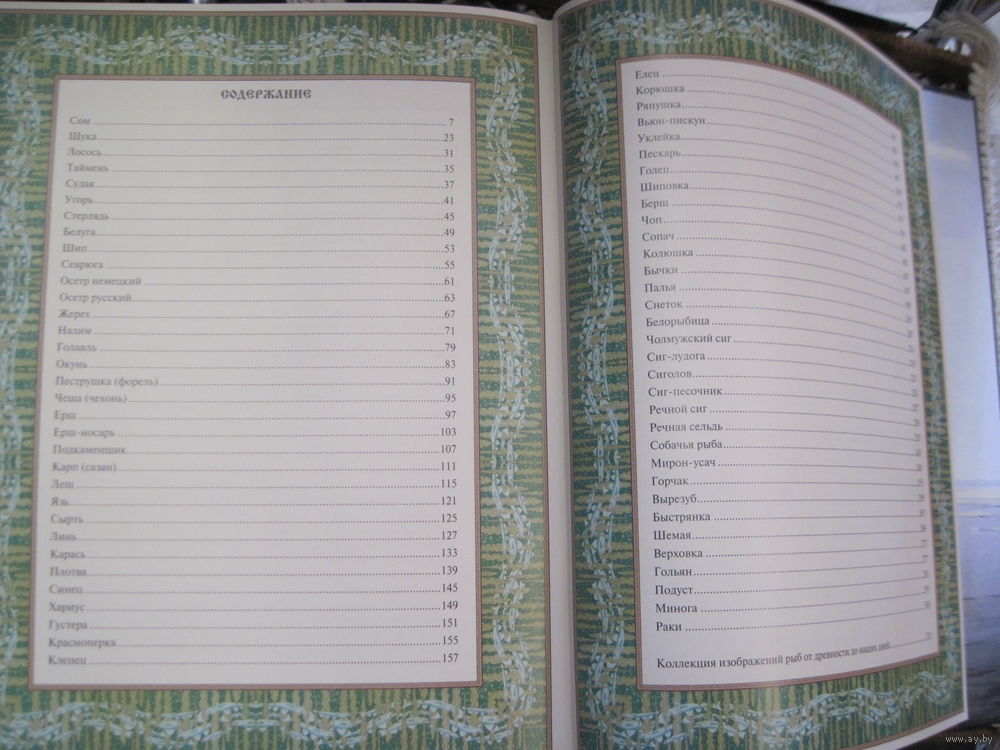 СОДЕРЖАНИЕ
Сом 7
Щука 23
Лосось 31
Таймень 35
Судак 37
Угорь 41
Стерлядь 45
Белуга 49
Шип 53
Севрюга 55
Осетр немецкий 61
Осетр русский 63
Жерех 67
Налим 71
Голавль 79
Окунь 83
Пеструшка (форель) 91
Чеша (чехонь) 95
Ерш 97
Ерш-носарь 103
Подкаменщик 107
Карп (сазан) 111
Лещ 115
Язь 121
Сырть 125
Линь 127
Карась 133
Плотва 139
Синец 145
Хариус 149
Густера 151
Красноперка 155
Клепец 157
Елец
Корюшка
Ряпушка
Вьюн-пискун
Уклейка
Пескарь
Голец
Шиповка
Берш
Чоп
Сопач
Колюшка
Бычки
Палья
Снеток
Белорыбица
Чолмужский сиг
Сиг-лудога
Сиголов
Сиг-песочник
Речной сиг
Речная сельдь
Собачья рыба
Мирон-усач
Горчак
Вырезуб
Быстрянка
Шемая
Верховка
Гольян
Подуст
Минога
Раки
Коллекция изображений рыб от древности до наших дней
www.ay.by